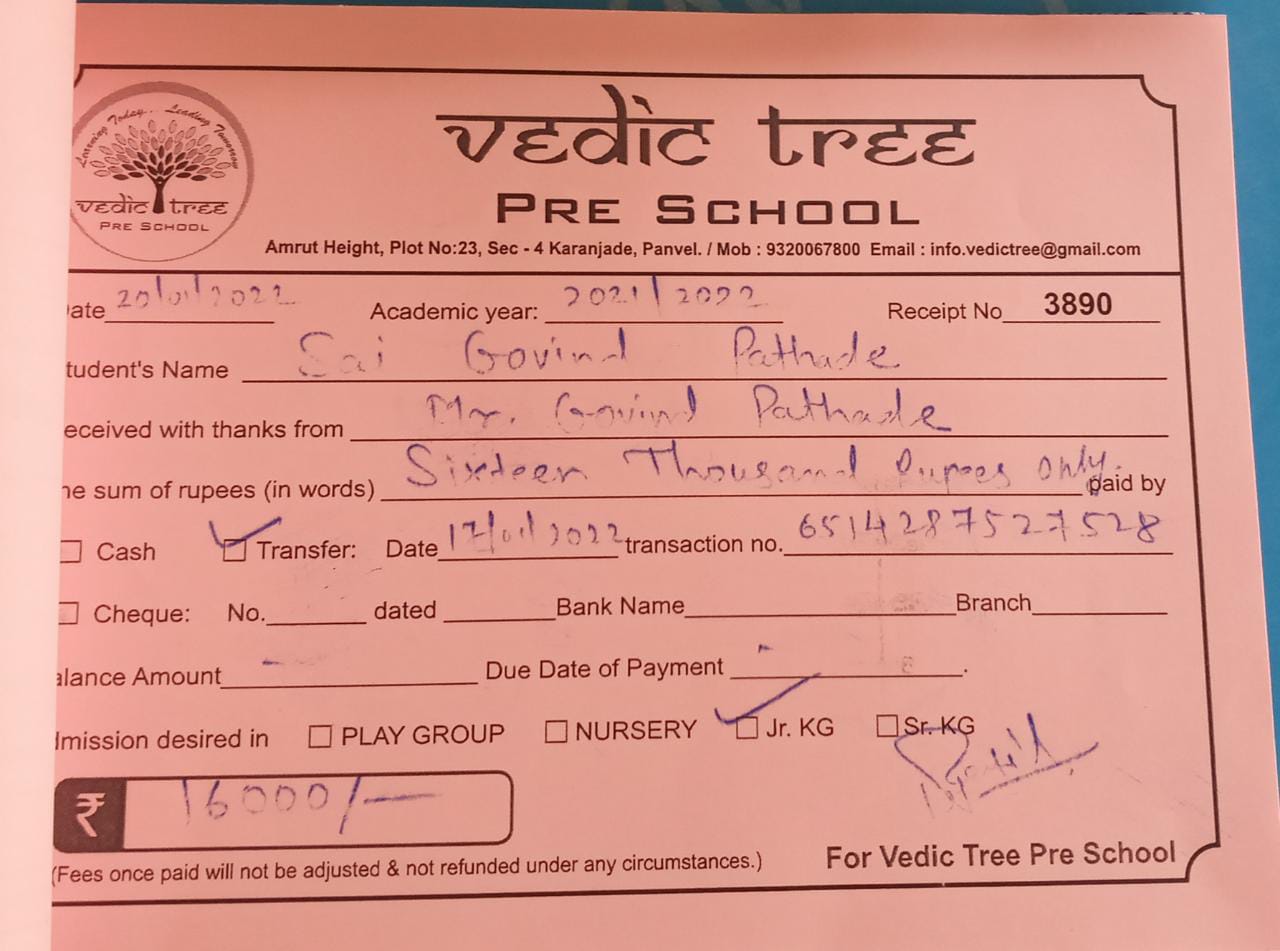 Learning Today... Leading Tomorrow
vedic tree
PRE SCHOOL
vedic tree
PRE SCHOOL
Amrut Height, Plot No:23, Sec - 4 Karanjade, Panvel. / Mob : 9320067800 Email : info.vedictree@gmail.com
ate 20/01/2022 Academic year: 2021/2022 Receipt No 3890
tudent's Name Sai Govind Pathade
eceived with thanks from Mr. Govind Pathade
he sum of rupees (in words) Sixteen Thousand Rupees Only. paid by
Cash Transfer: Date 17/01/2022 transaction no. 6514287527528
Cheque: No. dated Bank Name Branch
alance Amount - Due Date of Payment - .
dmission desired in PLAY GROUP NURSERY Jr. KG Sr. KG
₹ 16000/-
(Fees once paid will not be adjusted & not refunded under any circumstances.) For Vedic Tree Pre School